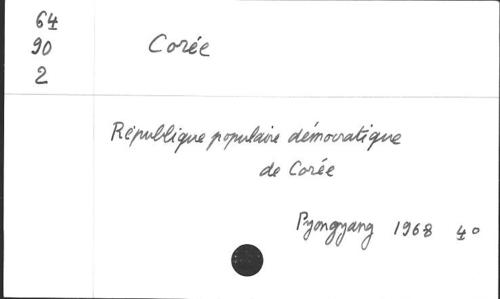 64
90
2
Corée
République populaire démocratique
de Corée
Pyongyang 1968 4°